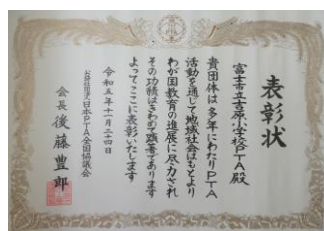 表彰状
富士市立吉原小学校PTA殿
貴団体は多年にわたりPTA
活動を通じて地域社会はもとより
わが国教育の進展に尽力され
その功績はきわめて顕著であります
よってここに表彰いたします
令和五年十一月二十四日
公益社団法人日本PTA全国協議会
会長 後藤豊郎